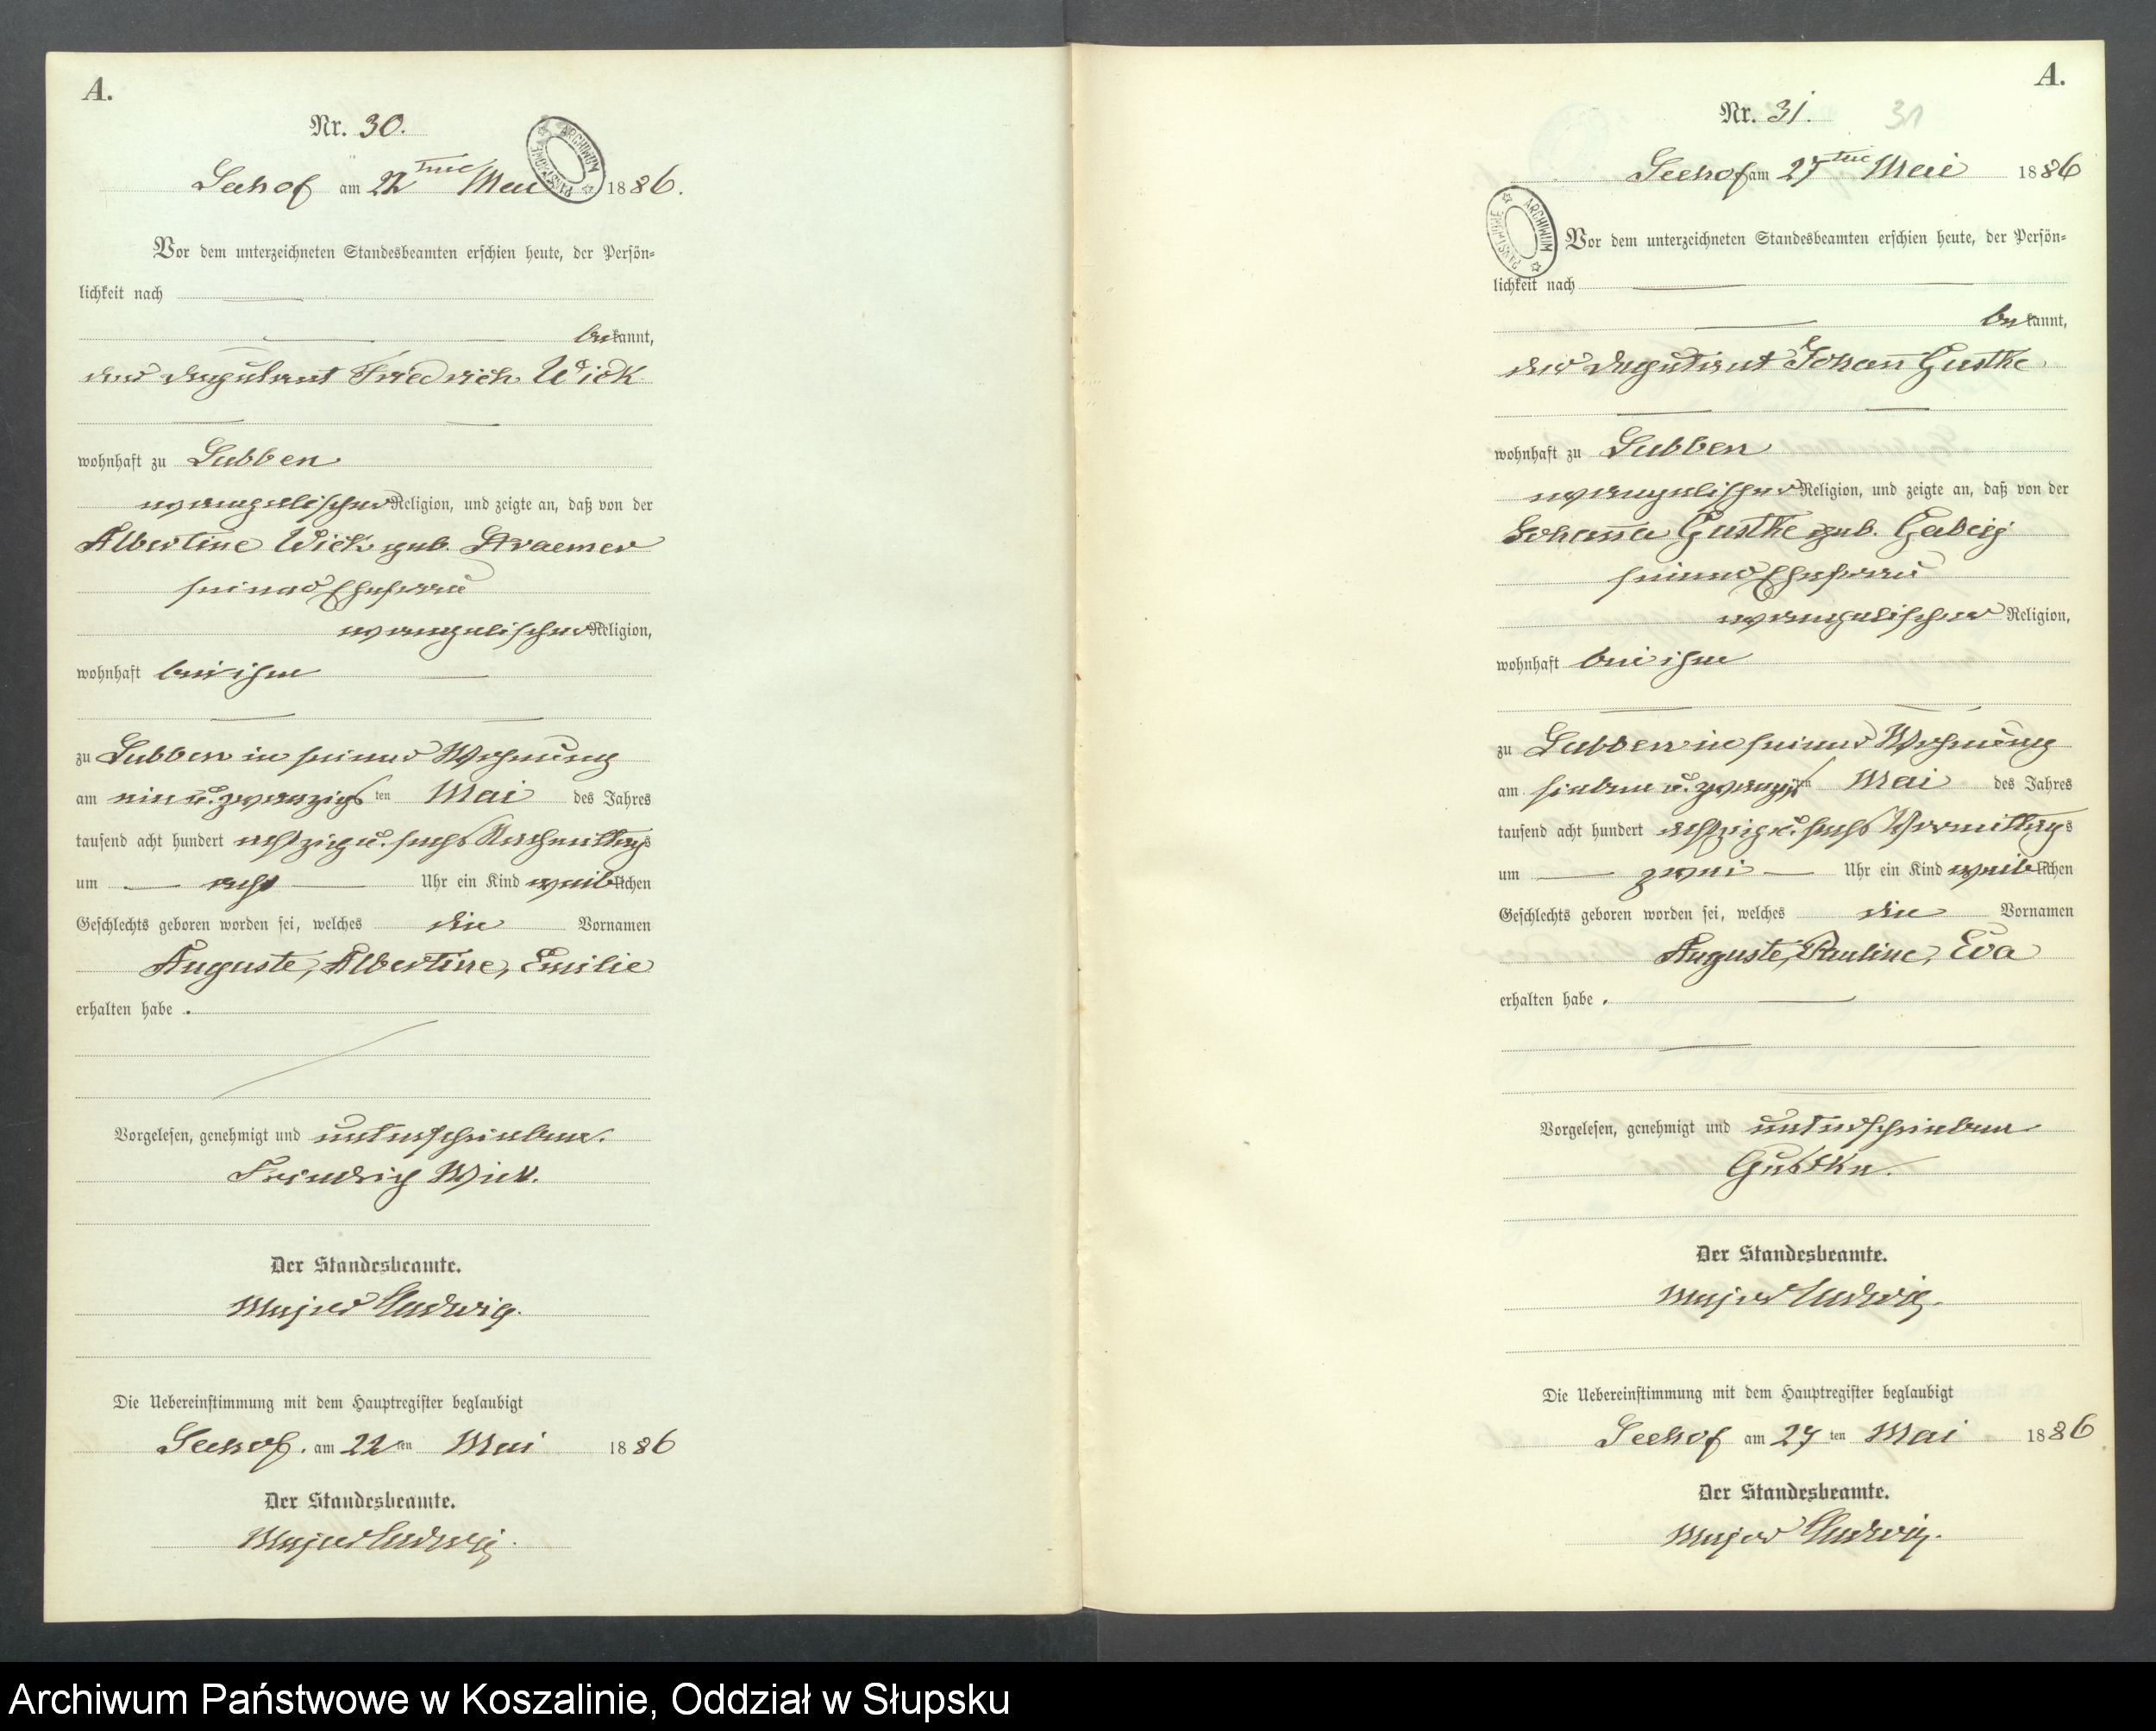 A.
Nr. 30.
Seehof am 22ten Mai 1886.
ARCHIWUM PAŃSTWOWE
Vor dem unterzeichneten Standesbeamten erschien heute, der Persön-
lichkeit nach
bekannt,
der Friedrich Wick
wohnhaft zu Lubben
evangelischer Religion, und zeigte an, daß von der
Albertine Wick geb. Kraemer
seiner Ehefrau
evangelischer Religion,
wohnhaft bei ihm
zu Lubben in seiner Wohnung
am ein u. zwanzigsten Mai des Jahres
tausend acht hundert achtzig u. sechs Nachmittags
um acht Uhr ein Kind weiblichen
Geschlechts geboren worden sei, welches die Vornamen
Auguste, Albertine, Emilie
erhalten habe.
Vorgelesen, genehmigt und unterschrieben.
Friedrich Wick.
Der Standesbeamte.
Major Ludwig.
Die Uebereinstimmung mit dem Hauptregister beglaubigt
Seehof. am 22ten Mai 1886
Der Standesbeamte.
Major Ludwig.
A.
Nr. 31.
31
Seehof am 27ten Mai 1886
ARCHIWUM PAŃSTWOWE
Vor dem unterzeichneten Standesbeamten erschien heute, der Persön-
lichkeit nach
bekannt,
der Johann Gustke
wohnhaft zu Lubben
evangelischer Religion, und zeigte an, daß von der
Johanna Gustke geb.
seiner Ehefrau
evangelischer Religion,
wohnhaft bei ihm
zu Lubben in seiner Wohnung
am sieben u. zwanzigsten Mai des Jahres
tausend acht hundert achtzig u. sechs Vormittags
um zwei Uhr ein Kind weiblichen
Geschlechts geboren worden sei, welches die Vornamen
Auguste, Pauline, Eva
erhalten habe.
Vorgelesen, genehmigt und unterschrieben
Gustke.
Der Standesbeamte.
Major Ludwig.
Die Uebereinstimmung mit dem Hauptregister beglaubigt
Seehof am 27ten Mai 1886
Der Standesbeamte.
Major Ludwig.
Archiwum Państwowe w Koszalinie, Oddział w Słupsku